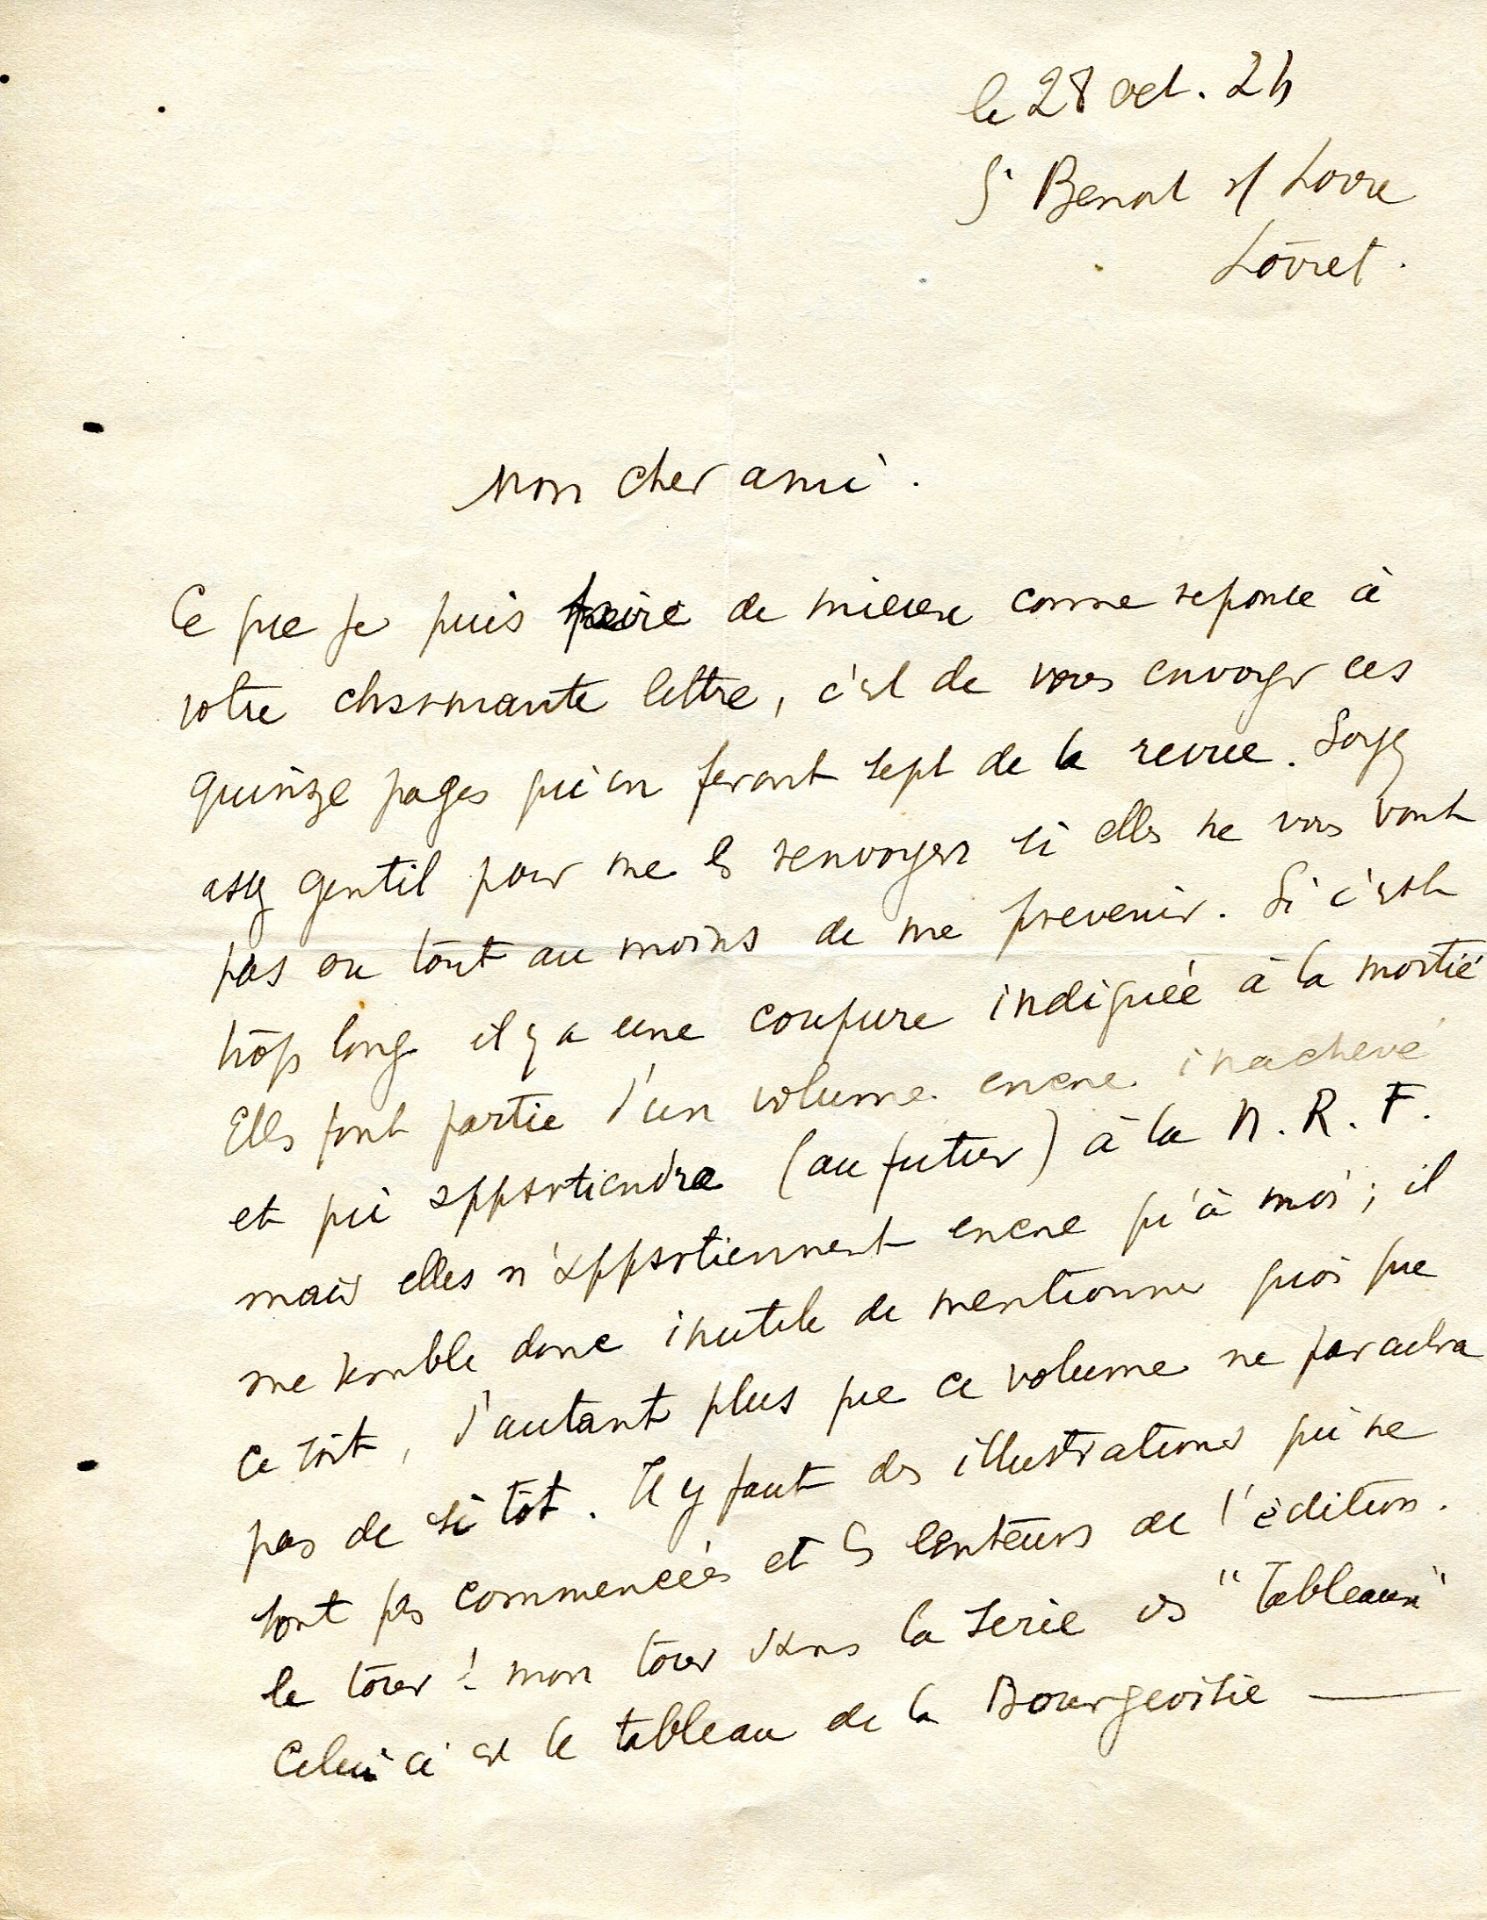 le 28 oct. 24
St Benoit s/ Loire
Loiret.
Mon cher ami.
Ce que je puis faire de mieux comme reponse à
votre charmante lettre, c'est de vous envoyer ces
quinze pages qui en feront sept de la revue. Soyez
assez gentil pour me les renvoyer si elles ne vous vont
pas ou tout au moins de me prevenir. Si c'est
trop long il y a une coupure indiquée à la moitié
Elles font partie d'un volume encore inachevé
et qui appartiendra (au futur) à la N. R. F.
mais elles n'appartiennent encore qu'à moi ; il
me semble donc inutile de mentionner quoi que
ce soit, d'autant plus que ce volume ne paraitra
pas de si tôt. Il y faut des illustrations qui ne
sont pas commencées et les lenteurs de l'édition.
le tour ! mon tour dans la serie des "Tableaux"
Celui ci est le tableau de la Bourgeoisie —